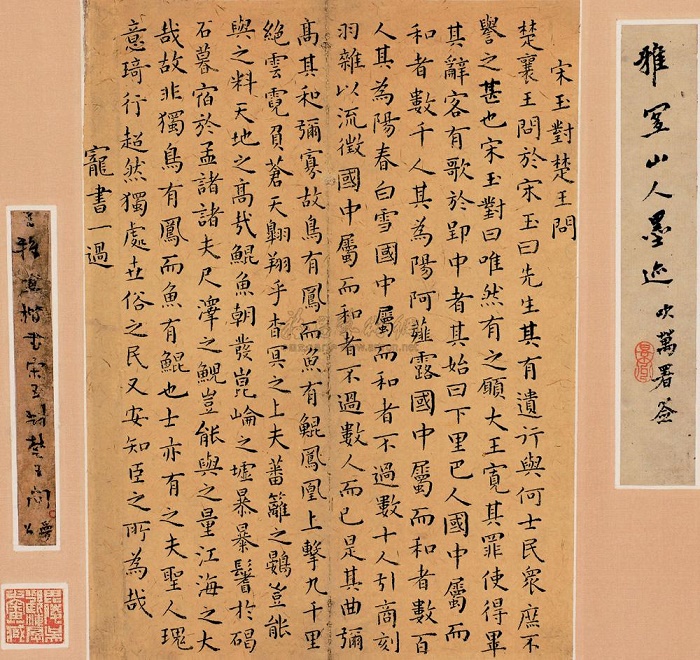 雅宜山人墨迹 吹萬署簽
宋玉對楚王問
楚襄王問於宋玉曰先生其有遺行與何士民衆庶不
譽之甚也宋玉對曰唯然有之願大王寬其罪使得畢
其辭客有歌於郢中者其始曰下里巴人國中屬而
和者數千人其為陽阿薤露國中屬而和者數百
人其為陽春白雪國中屬而和者不過數十人引商刻
羽雜以流徵國中屬而和者不過數人而已是其曲彌
髙其和彌寡故鳥有鳳而魚有鯤鳳凰上擊九千里
絕雲霓負蒼天翺翔乎杳冥之上夫蕃籬之鷃豈能
與之料天地之髙哉鯤魚朝發崑崘之墟暴暴鬐於碣
石暮宿於孟諸諸夫尺澤之鯢豈能與之量江海之大
哉故非獨鳥有鳳而魚有鯤也士亦有之夫聖人瑰
意琦行超然獨處世俗之民又安知臣之所為哉
寵書一過
王雅宜楷書宋玉對楚王問